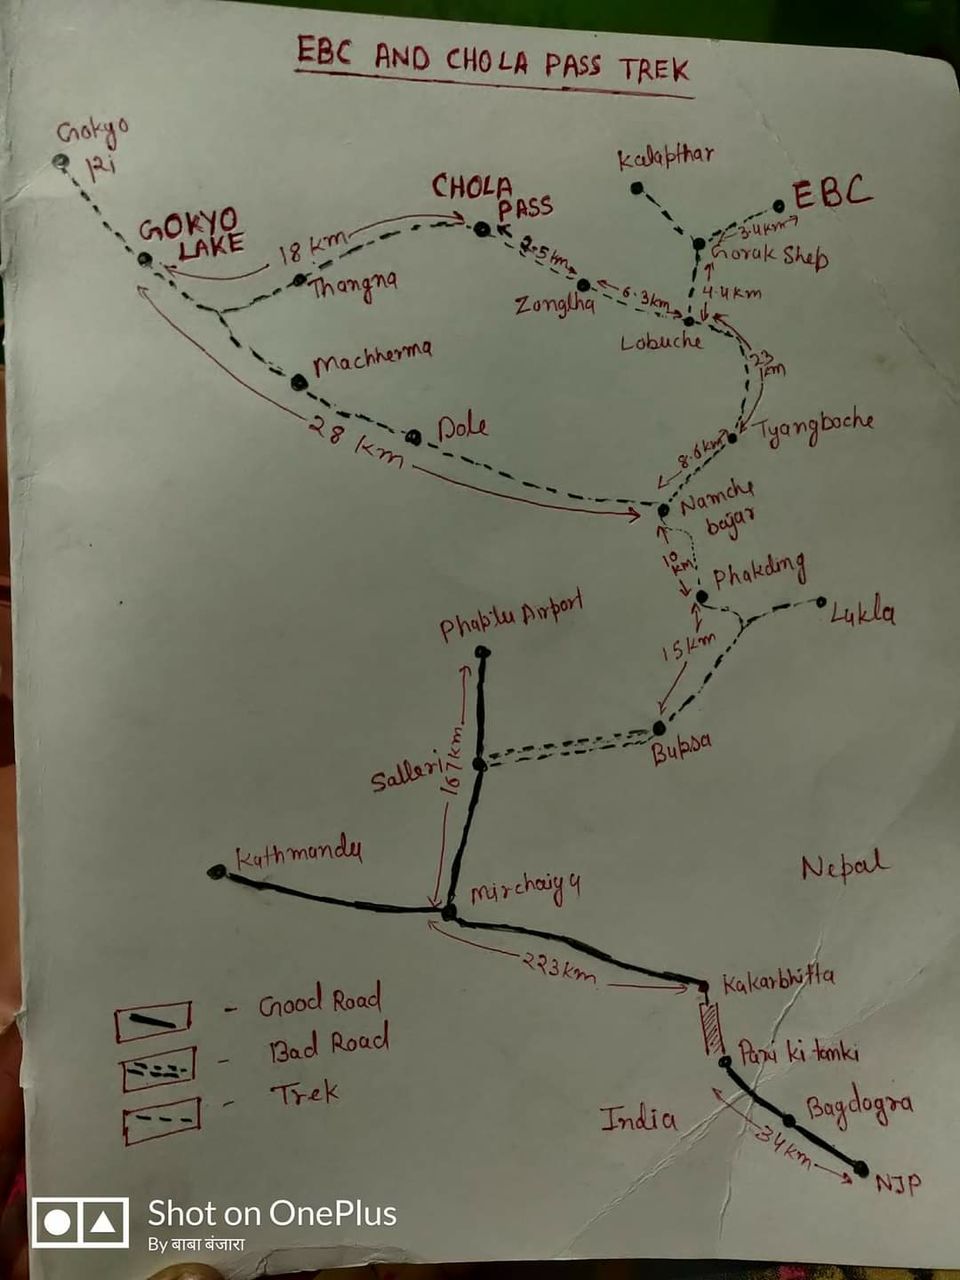 EBC AND CHOLA PASS TREK
Gokyo
Ri
Kalapthar
CHOLA
PASS
EBC
GOKYO
LAKE
18 km
3.4km
Gorak Shep
2.5km
Thangna
Zonglha
6.3km
4.4km
Lobuche
23
km
Machherma
28 km
Dole
Tyangboche
8.6km
Namche
bajar
10
km
Phakding
Phaplu Airport
Lukla
15km
Salleri
167km
Bupsa
Kathmandu
Mirchaiya
Nepal
223km
Kakarbhitta
- Good Road
- Bad Road
- Trek
Pani ki tanki
India
Bagdogra
34km
NJP
Shot on OnePlus
By बाबा बंजारा